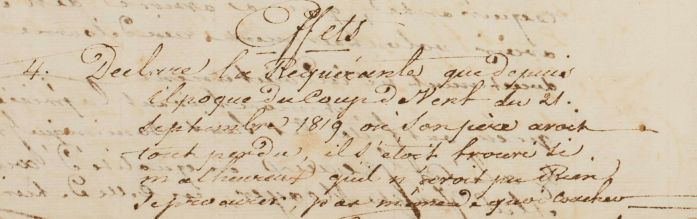 Effets
4. Declare la Requérante que depuis
l'Epoque du Coup de Vent du 21.
septembre 1819 où son père avoit
tout perdu, il s'étoit trouvé si
malheureux qu'il n'avoit pu rien
se procurer pas même de quoi coucher